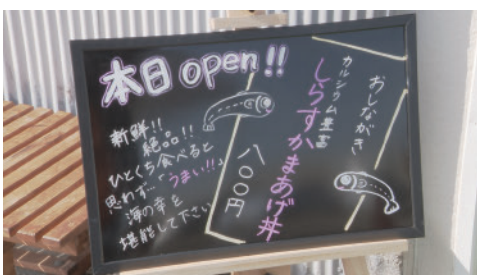 本日open!!
おしながき
カルシウム豊富
しらすかまあげ丼
八〇〇円
新鮮!!
絶品!!
ひとくち食べると
思わず…「うまい!!」
海の幸を
堪能して下さい